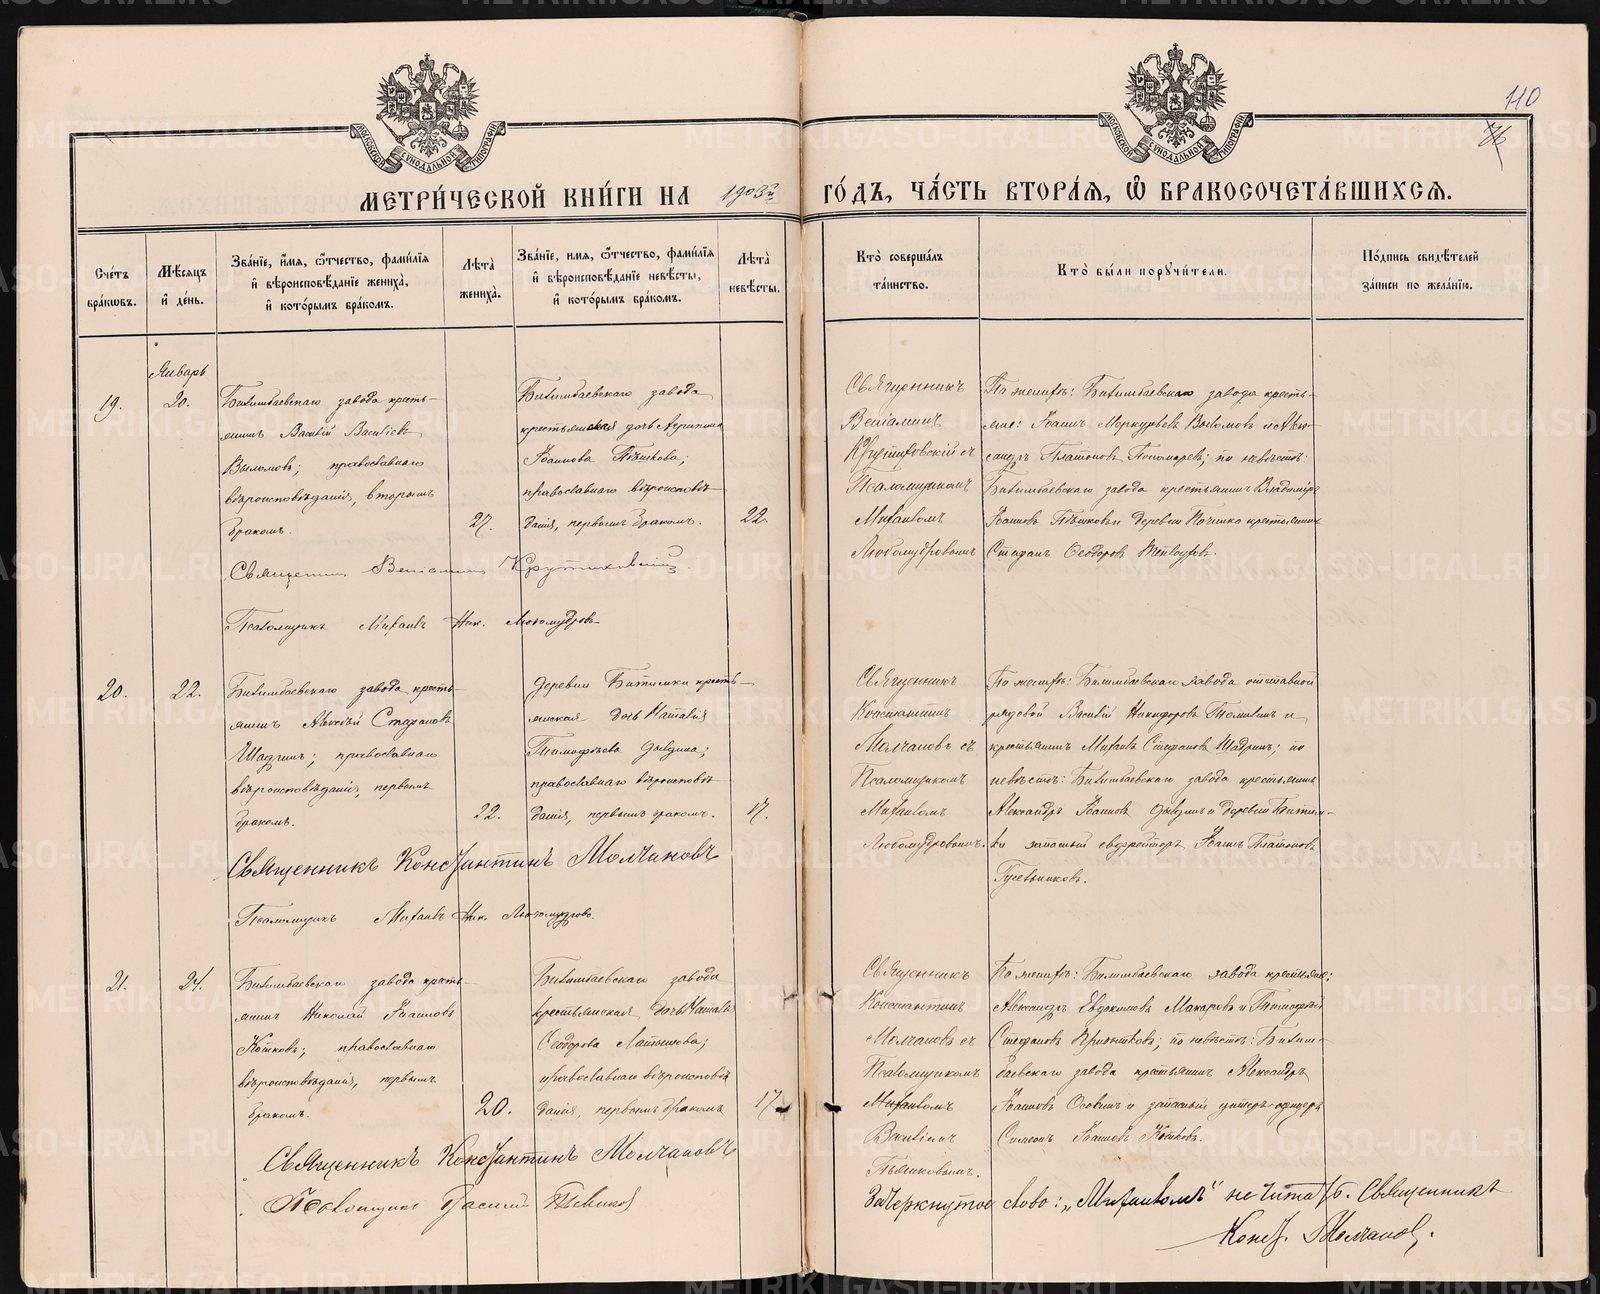 110
76
МЕТРИ́ЧЕСКОЙ КНИ́ГИ НА 1903й ГО́ДЪ, ЧА́СТЬ ВТОРА́Я, Ѽ БРАКОСОЧЕТА́ВШИХСЯ.
Сче́тъ бра́кωвъ.
Мѣ́сяцъ и҆ де́нь.
Зва́нїе, и҆́мя, ѻ҆́тчество, фами́лїя и҆ вѣроисповѣ́данїе жениха̀, и҆ кото́рымъ бра́комъ.
Лѣ́та жениха̀.
Зва́нїе, имя, ѻ҆́тчество, фами́лїя и҆ вѣроисповѣ́данїе невѣ́сты, и҆ кото́рымъ бра́комъ.
Лѣ́та невѣ́сты.
Кто̀ соверша́лъ та́инство.
Кто̀ бы́ли пору́чители.
По́дпись свидѣ́телей за́писи по жела́нїю.
Январь
19.
20.
Билимбаевскаго завода кресть-
янинъ Василій Васильевъ
Выломовъ; православнаго
вѣроисповѣданія, вторымъ
бракомъ.
27.
Билимбаевскаго завода
крестьянская дочь Агрипина
Іоаннова Пѣшкова;
православнаго вѣроисповѣ-
данія, первымъ бракомъ.
22.
Священникъ
Веніаминъ
Крутиховскій съ
Псаломщикомъ
Михаиломъ
Любомудровымъ
По женихѣ: Билимбаевскаго завода кресть-
яне: Іоаннъ Меркурьевъ Выломовъ и Алек-
сандръ Платоновъ Пономаревъ; по невѣстѣ:
Билимбаевскаго завода крестьянинъ Владиміръ
Іоанновъ Пѣшковъ и деревни Починка крестьянинъ
Стефанъ Ѳеодоровъ
Священникъ Веніаминъ Крутиховскій
Псаломщикъ Михаилъ Ник. Любомудровъ
20.
22.
Билимбаевскаго завода кресть-
янинъ Алексѣй Стефановъ
Шадринъ; православнаго
вѣроисповѣданія, первымъ
бракомъ.
22.
деревни Битимки кресть-
янская дочь Наталія
Тимофѣева Дылдина;
православнаго вѣроисповѣ-
данія, первымъ бракомъ.
17.
Священникъ
Константинъ
Молчановъ съ
Псаломщикомъ
Михаиломъ
Любомудровымъ.
По женихѣ: Билимбаевскаго завода отставной
рядовой Василій Никифоровъ Томилинъ и
крестьянинъ Михаилъ Стефановъ Шадринъ; по
невѣстѣ: Билимбаевскаго завода крестьянинъ
Александръ Іоанновъ Дылдинъ и деревни Битим-
ки запасный ефрейторъ Іоаннъ Платоновъ
Гусельниковъ.
Священникъ Константинъ Молчановъ
Псаломщикъ Михаилъ Ник. Любомудровъ.
21.
24.
Билимбаевскаго завода кресть-
янинъ Николай Іоанновъ
Котковъ; православнаго
вѣроисповѣданія, первымъ
бракомъ.
20.
Билимбаевскаго завода
крестьянская дочь Наталія
Ѳеодорова Латышова;
православнаго вѣроисповѣ-
данія, первымъ бракомъ
17
Священникъ
Константинъ
Молчановъ съ
Псаломщикомъ
Михаиломъ
Василіемъ
Пьянковымъ.
По женихѣ: Билимбаевскаго завода крестьяне:
Александръ Евдокимовъ Макаровъ и Тимофѣй
Стефановъ Кривошковъ; по невѣстѣ: Билим-
баевскаго завода крестьянинъ Александръ
Іоанновъ Осокинъ и запасный унтеръ-офицеръ
Симеонъ Іоанновъ Котковъ.
Священникъ Константинъ Молчановъ
Псаломщикъ Василій Пьянковъ
Зачеркнутое слово: „Михаиломъ" не читать. Священникъ
Конст. Молчановъ.